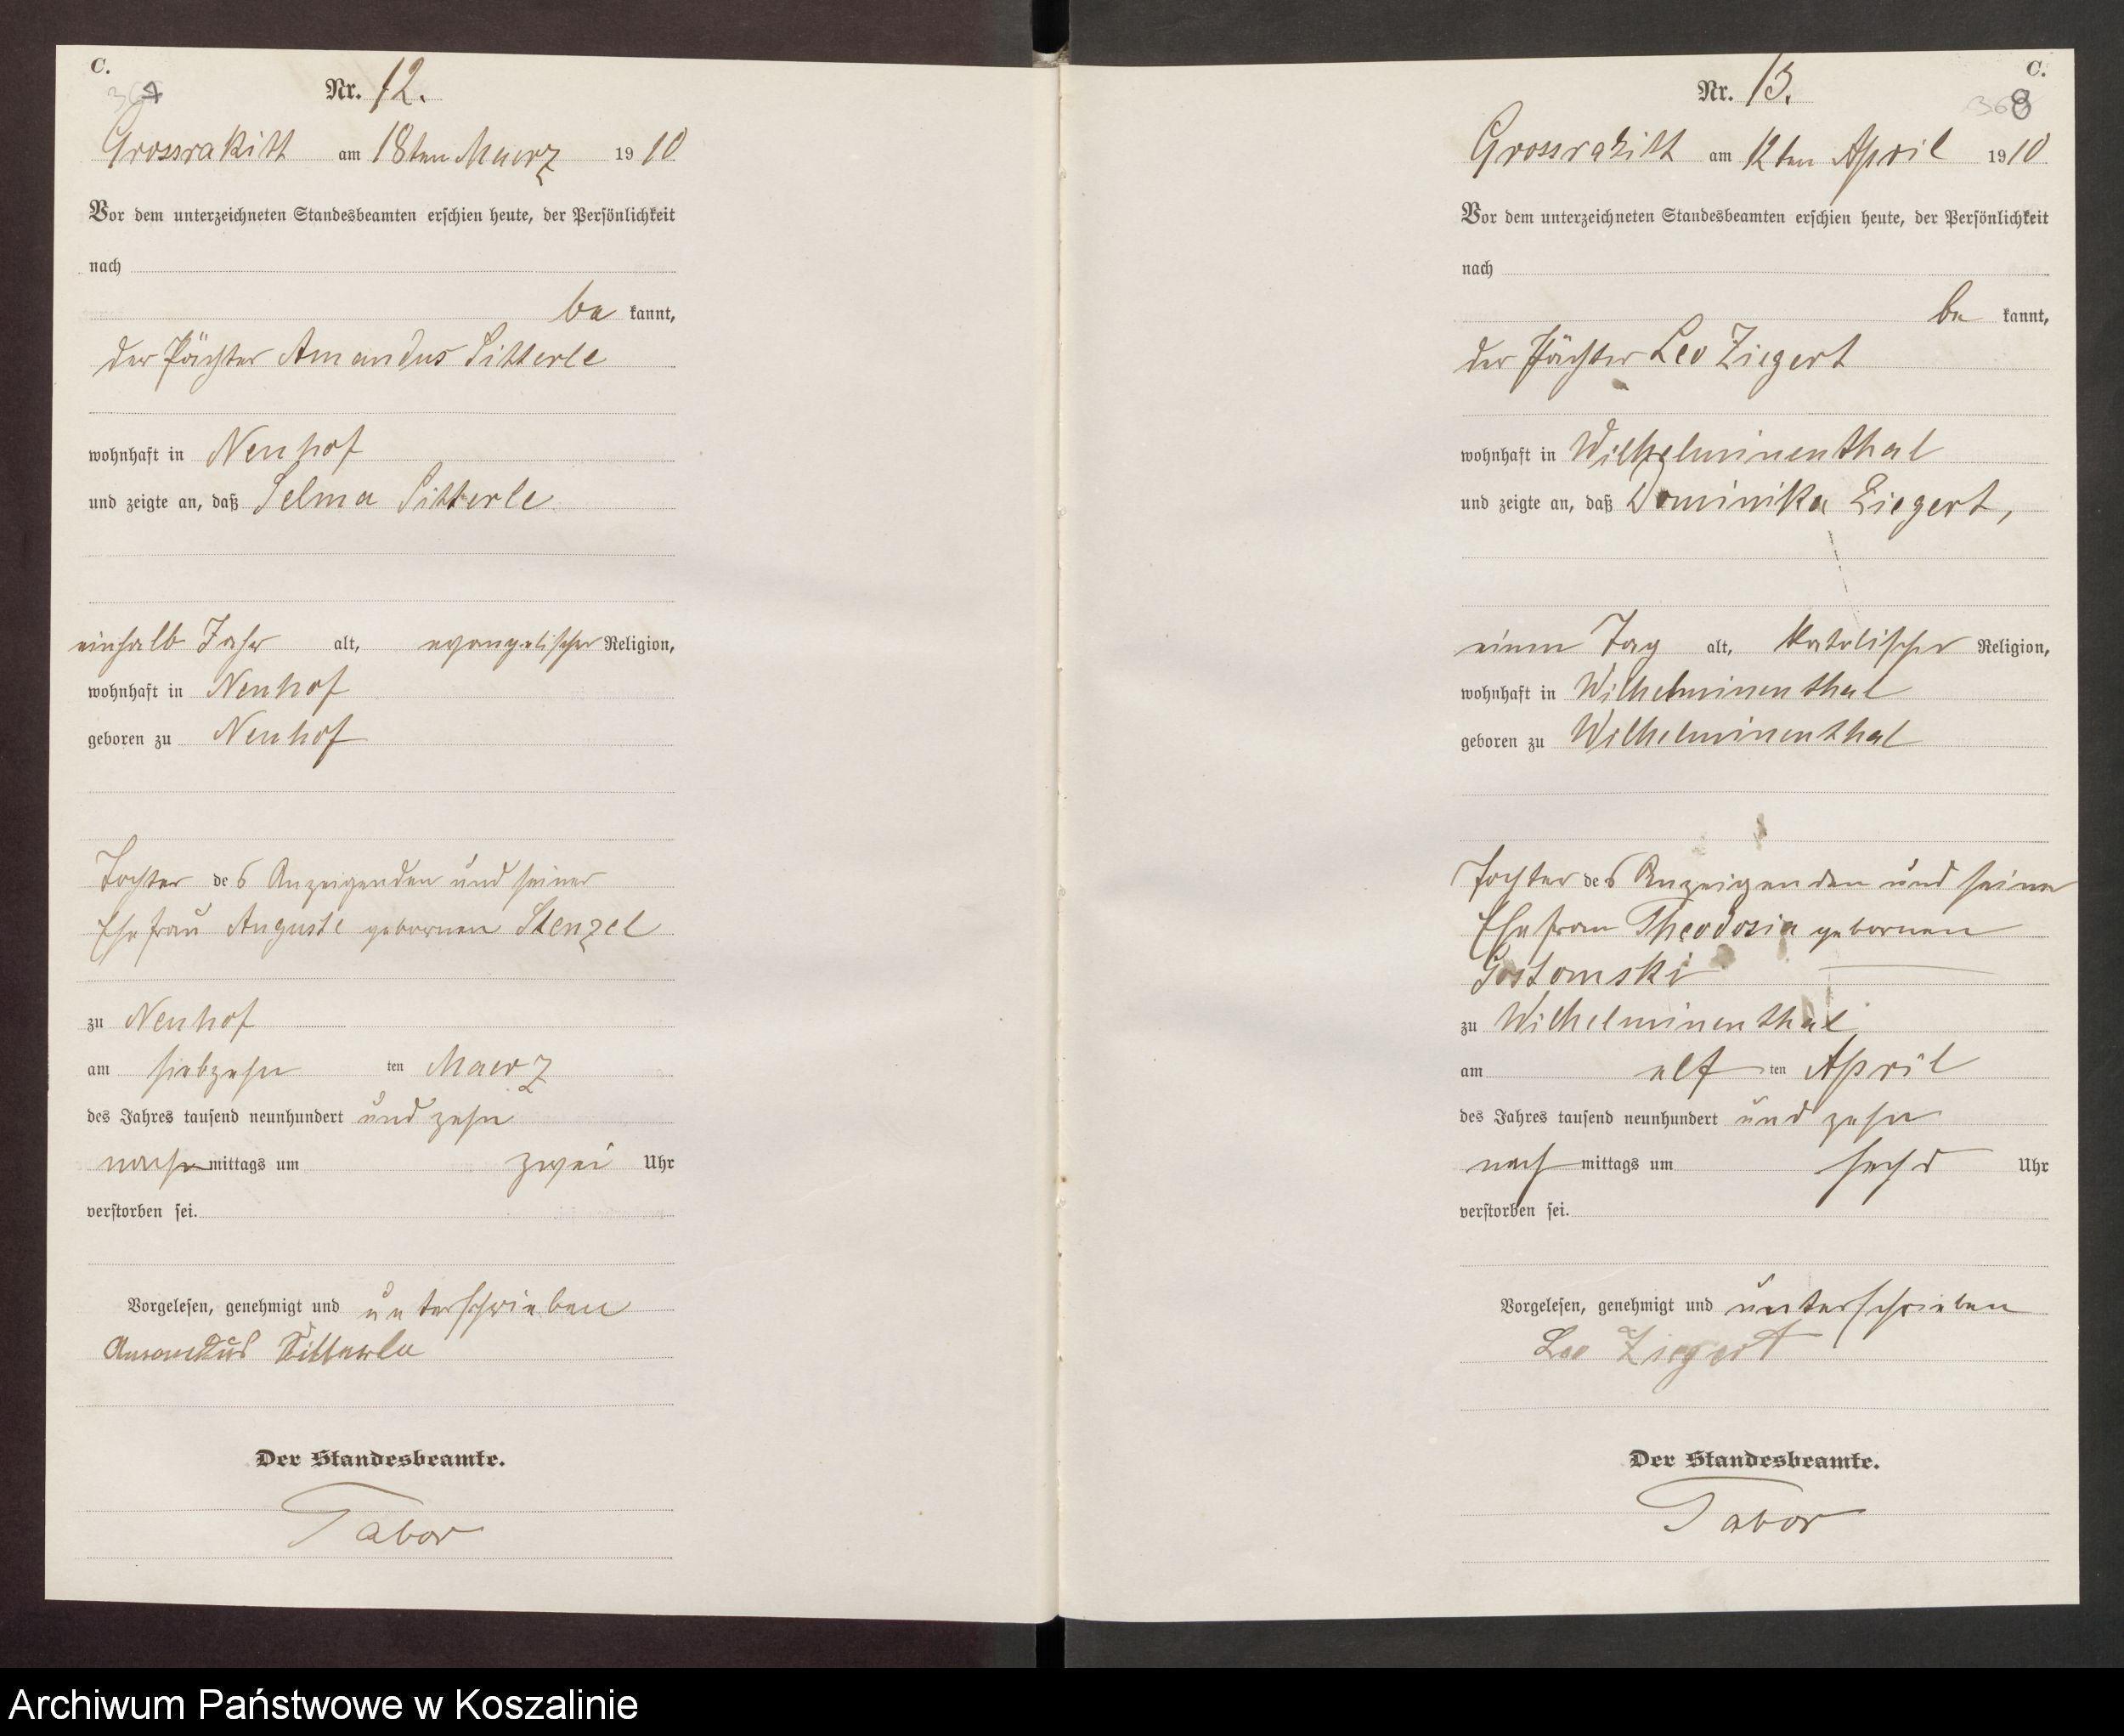 C.
Nr. 12.
Grossrakitt am 18ten Maerz 1910
Vor dem unterzeichneten Standesbeamten erschien heute, der Persönlichkeit
nach
be kannt,
der Pächter Amandus Sitterle
wohnhaft in Neuhof
und zeigte an, daß Selma Sitterle
einhalb Jahr alt, evangelischer Religion,
wohnhaft in Neuhof
geboren zu Neuhof
Tochter des Anzeigenden und seiner
Ehefrau Auguste gebornen Stenzel
zu Neuhof
am siebzehn ten Maerz
des Jahres tausend neunhundert und zehn
nach mittags um zwei Uhr
verstorben sei.
Vorgelesen, genehmigt und unterschrieben
Amandus Sitterle
Der Standesbeamte.
Tabor
C.
Nr. 13.
368
Grossrakitt am 12ten April 1910
Vor dem unterzeichneten Standesbeamten erschien heute, der Persönlichkeit
nach
be kannt,
der Pächter Leo Ziegert
wohnhaft in Wilhelminenthal
und zeigte an, daß Dominika Ziegert,
einen Tag alt, katolischer Religion,
wohnhaft in Wilhelminenthal
geboren zu Wilhelminenthal
Tochter des Anzeigenden und seiner
Ehefrau Theodosia gebornen
Gostomski
zu Wilhelminenthal
am elf ten April
des Jahres tausend neunhundert und zehn
nach mittags um sechs Uhr
verstorben sei.
Vorgelesen, genehmigt und unterschrieben
Leo Ziegert
Der Standesbeamte.
Tabor
Archiwum Państwowe w Koszalinie